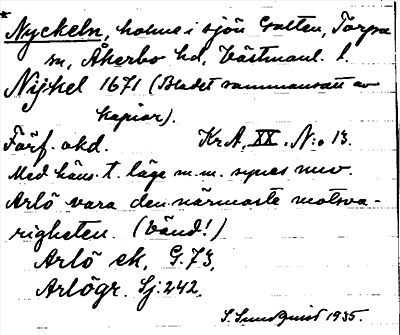 * Nyckeln, holme i sjön Galten, Torpa
sn, Åkerbo hd, Västmanl. l.
Nijkel 1671 (Bladet sammansatt av
kopior).
Förf. okd. Kr.A, XX. N:o 13.
Med häns. t. läge m.m. synes nuv.
Arlö vara den närmaste motsva-
righeten. (Vänd!)
Arlö ek, G.73,
Arlögr. Sj:242.
S. Sundquist 1935.